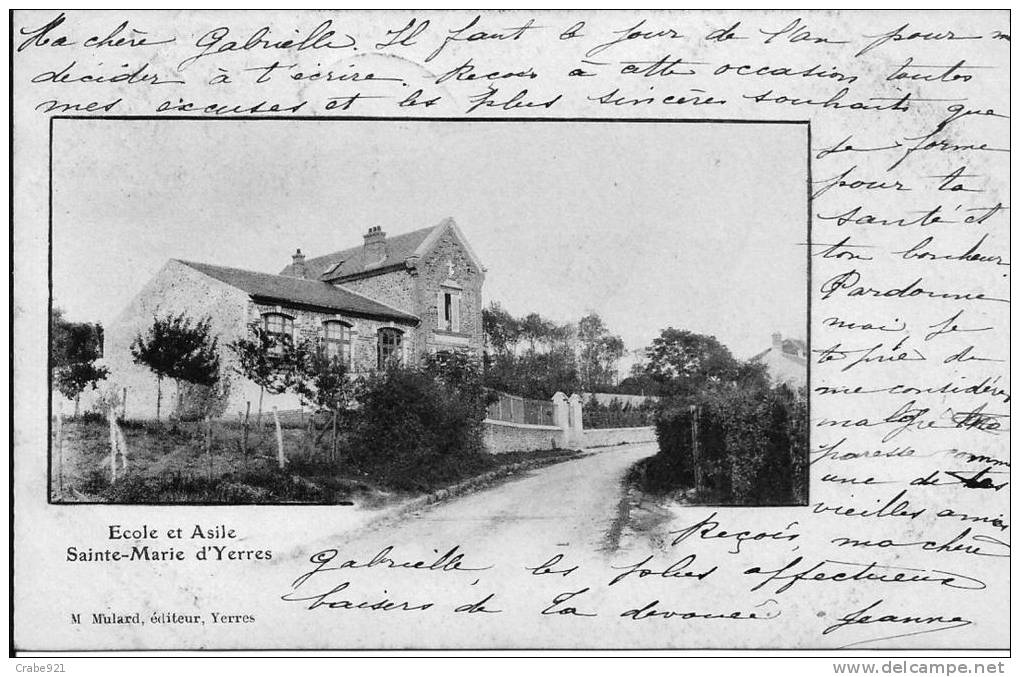 Ma chère Gabrielle. Il faut le jour de l'an pour me
décider à t'écrire. Reçois à cette occasion toutes
mes excuses et les plus sincères souhaits que
je forme
pour ta
santé et
ton bonheur.
Pardonne
moi, je
te prie de
me considérer
malgré ma
paresse comme
une de tes
vieilles amies
Reçois, ma chère
Gabrielle, les plus affectueux
baisers de Ta dévouée Jeanne
Ecole et Asile
Sainte-Marie d'Yerres
M Mulard, éditeur, Yerres
Crabe921
www.delcampe.net